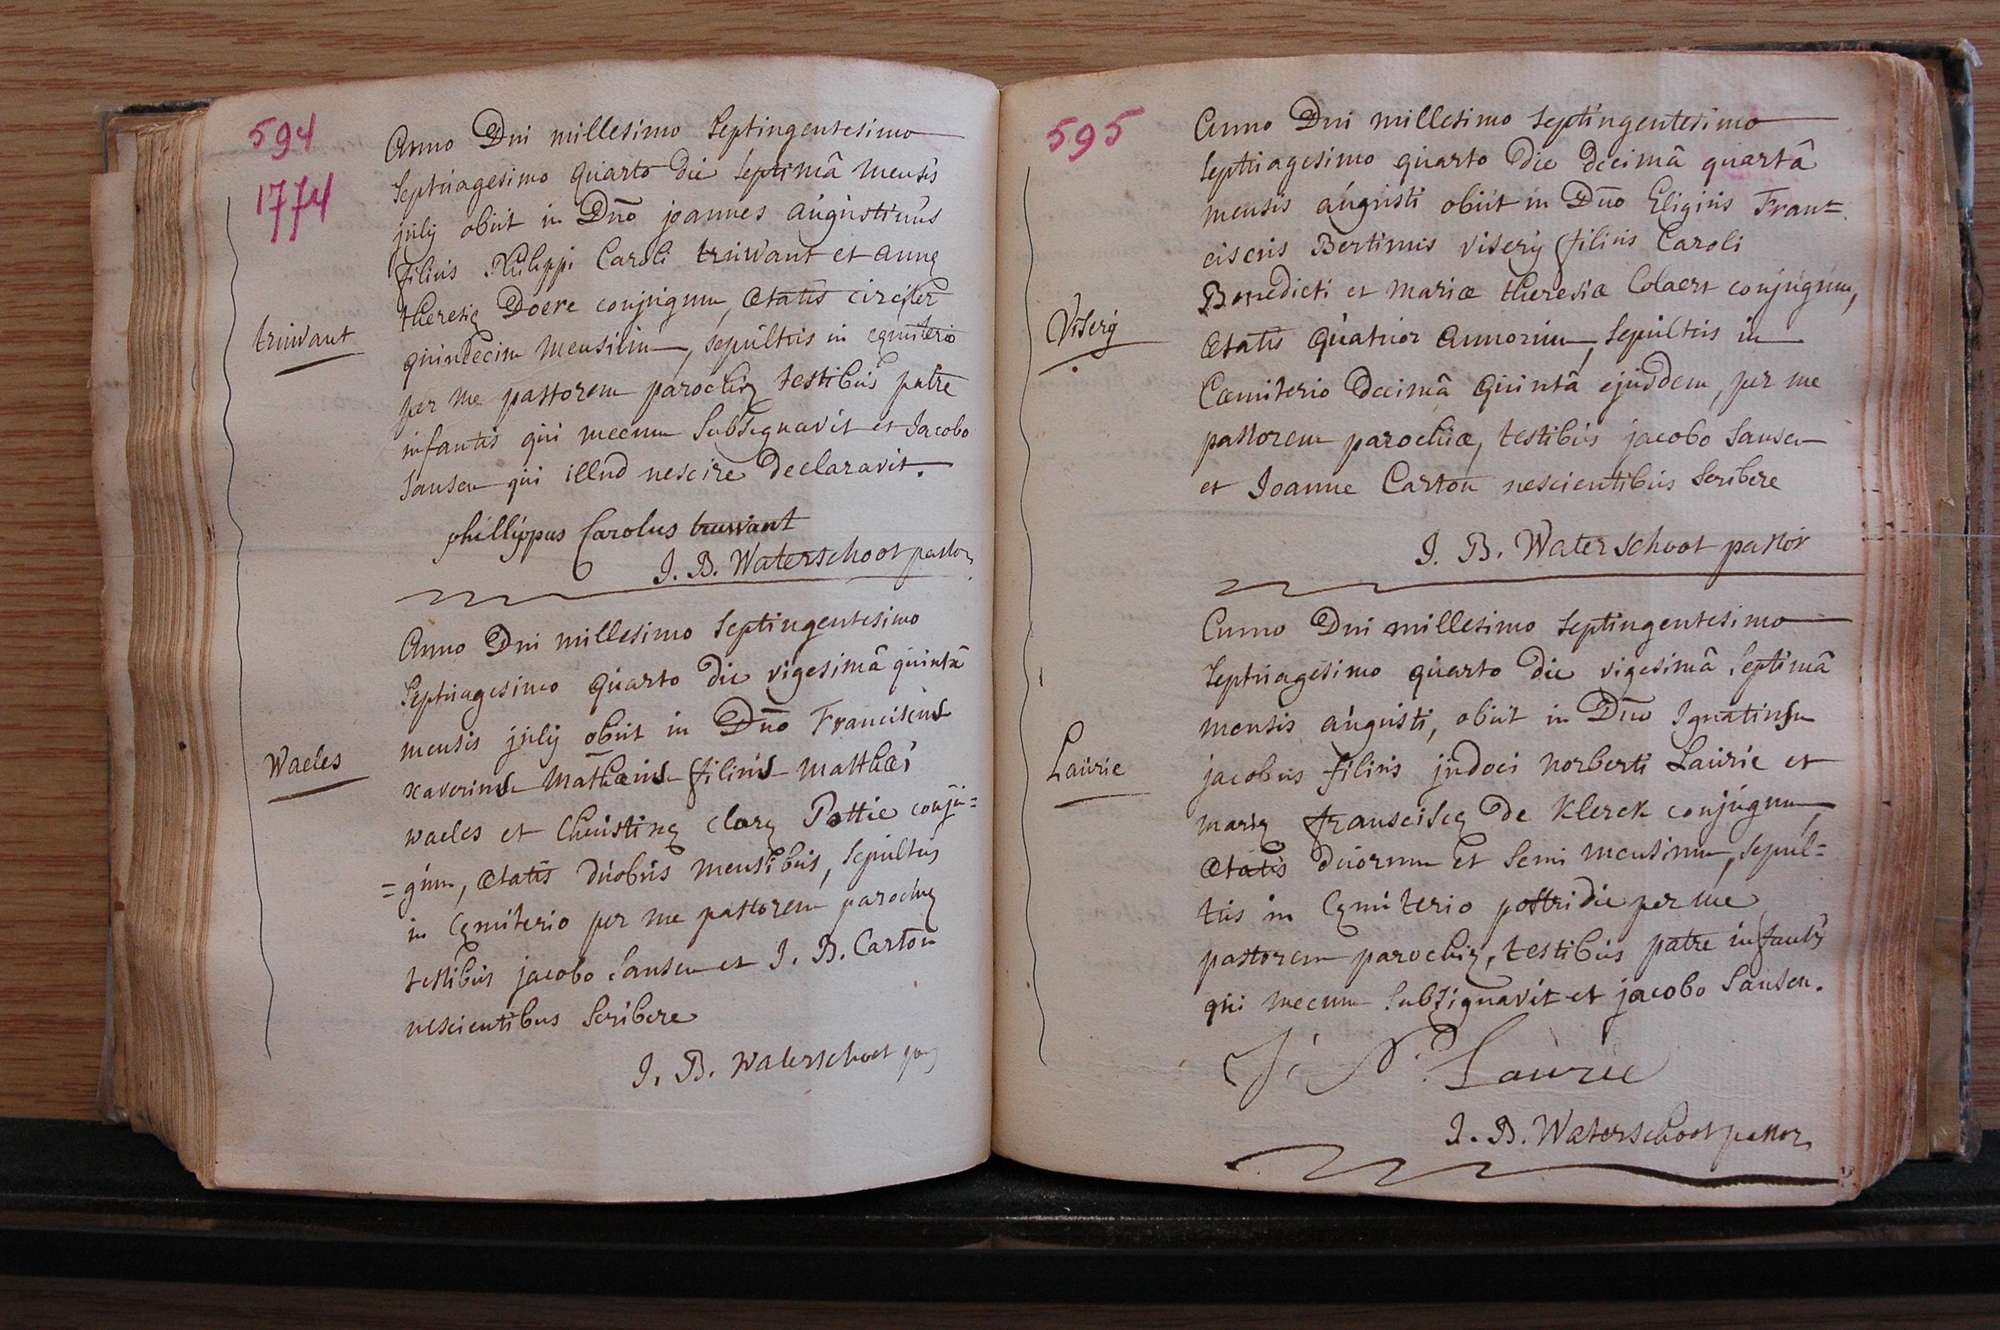 594
1774
Anno Dni millesimo Septingentesimo
Septuagesimo quarto die Septimâ mensis
julij obiit in Dno joannes augustinus
filius Philippi Caroli truwant et annę
theresię Doere conjugum, ætatis circiter
truwant
quindecim mensium, sepultus in cęmiterio
per me pastorem parochię testibus patre
infantis qui mecum Subsignavit et Jacobo
Sansen qui illud nescire declaravit.
phillippus Carolus truwant
J. B. Waterschoot pastor
Anno Dni millesimo Septingentesimo
Septuagesimo quarto die vigesimâ quintâ
mensis julij obiit in Dno Franciscus
Waeles
xaverius Mathæus filius Matthæi
waeles et Christinę clarę Pottie conju=
=gum, ætatis duobus mensibus, sepultus
in cęmiterio per me pastorem parochię
testibus jacobo Sansen et J. B. Carton
nescientibus Scribere
J. B. Waterschoot
595
Anno Dni millesimo Septingentesimo
Septuagesimo quarto die decimâ quartâ
mensis augusti obiit in Dno Eligius Fran=
ciscus Bertinus viserij filius Caroli
Benedicti et mariæ theresiæ Colaert conjugum,
Viserij
ætatis quatuor annorum, sepultus in
Cæmiterio decimâ quintâ ejusdem, per me
pastorem parochiæ, testibus jacobo Sansen
et Joanne Carton nescientibus Scribere
J. B. Waterschoot pastor
Anno Dni millesimo Septingentesimo
Septuagesimo quarto die vigesimâ Septimâ
mensis augusti, obiit in Dno Ignatius
Laurie
jacobus filius judoci norberti Laurie et
marię franciscę De Klerck conjugum,
ætatis duorum et Semi mensium, sepul=
tus in Cęmiterio postridie per me
pastorem parochię, testibus patre infantis
qui mecum Subsignavit et jacobo Sansen.
Laurie
J. B. Waterschoot pastor